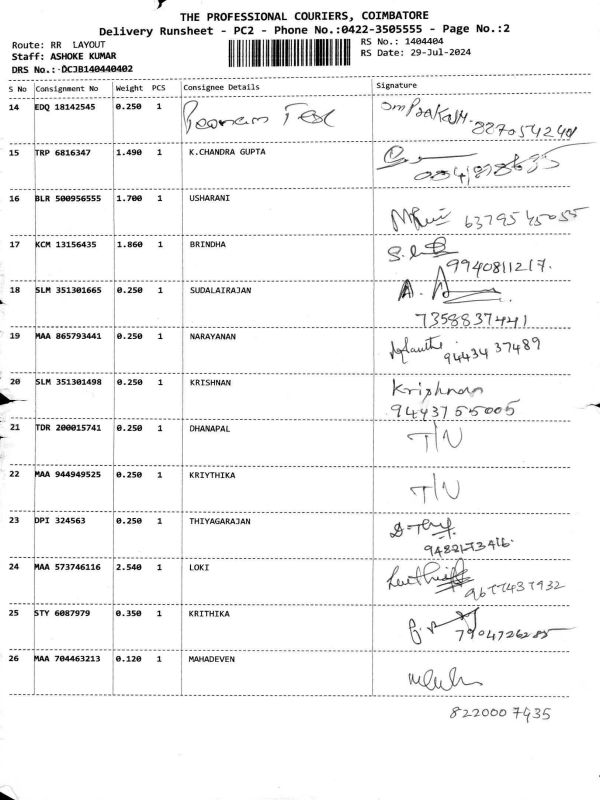 THE PROFESSIONAL COURIERS, COIMBATORE
Delivery Runsheet - PC2 - Phone No.:0422-3505555 - Page No.:2
Route: RR LAYOUT
RS No.: 1404404
Staff: ASHOKE KUMAR
RS Date: 29-Jul-2024
DRS No.: DCJB140440402
S No Consignment No Weight PCS Consignee Details Signature
14 EDQ 18142545 0.250 1 Om Prakash.
8870542401
15 TRP 6816347 1.490 1 K.CHANDRA GUPTA
16 BLR 500956555 1.700 1 USHARANI
6379545055
17 KCM 13156435 1.860 1 BRINDHA
9940811217.
18 SLM 351301665 0.250 1 SUDALAIRAJAN A.
7358837441
19 MAA 865793441 0.250 1 NARAYANAN
94434 37489
20 SLM 351301498 0.250 1 KRISHNAN Krishnan
9443755005
21 TDR 200015741 0.250 1 DHANAPAL T/N
22 MAA 944949525 0.250 1 KRIYTHIKA T/N
23 DPI 324563 0.250 1 THIYAGARAJAN
9482173416.
24 MAA 573746116 2.540 1 LOKI
9677437932
25 STY 6087979 0.350 1 KRITHIKA
7904726285
26 MAA 704463213 0.120 1 MAHADEVEN
8220007435